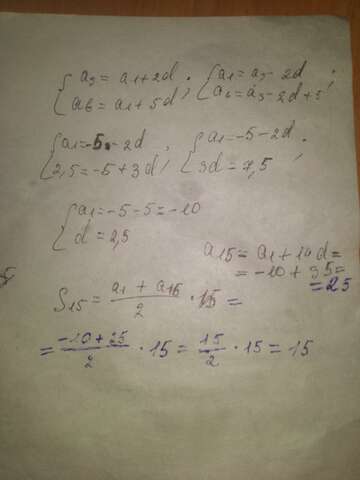 { a3 = a1 + 2d ; { a1 = a3 - 2d ;
{ a6 = a1 + 5d ; { a6 = a3 - 2d + 5
{ a1 = -5 - 2d ; { a1 = -5 - 2d ;
{ 2,5 = -5 + 3d ; { 3d = 7,5
{ a1 = -5 - 5 = -10
{ d = 2,5
a15 = a1 + 14d =
= -10 + 35 =
= 25
S15 = (a1 + a15)/2 · 15 =
= (-10 + 25)/2 · 15 = 15/2 · 15 = 15